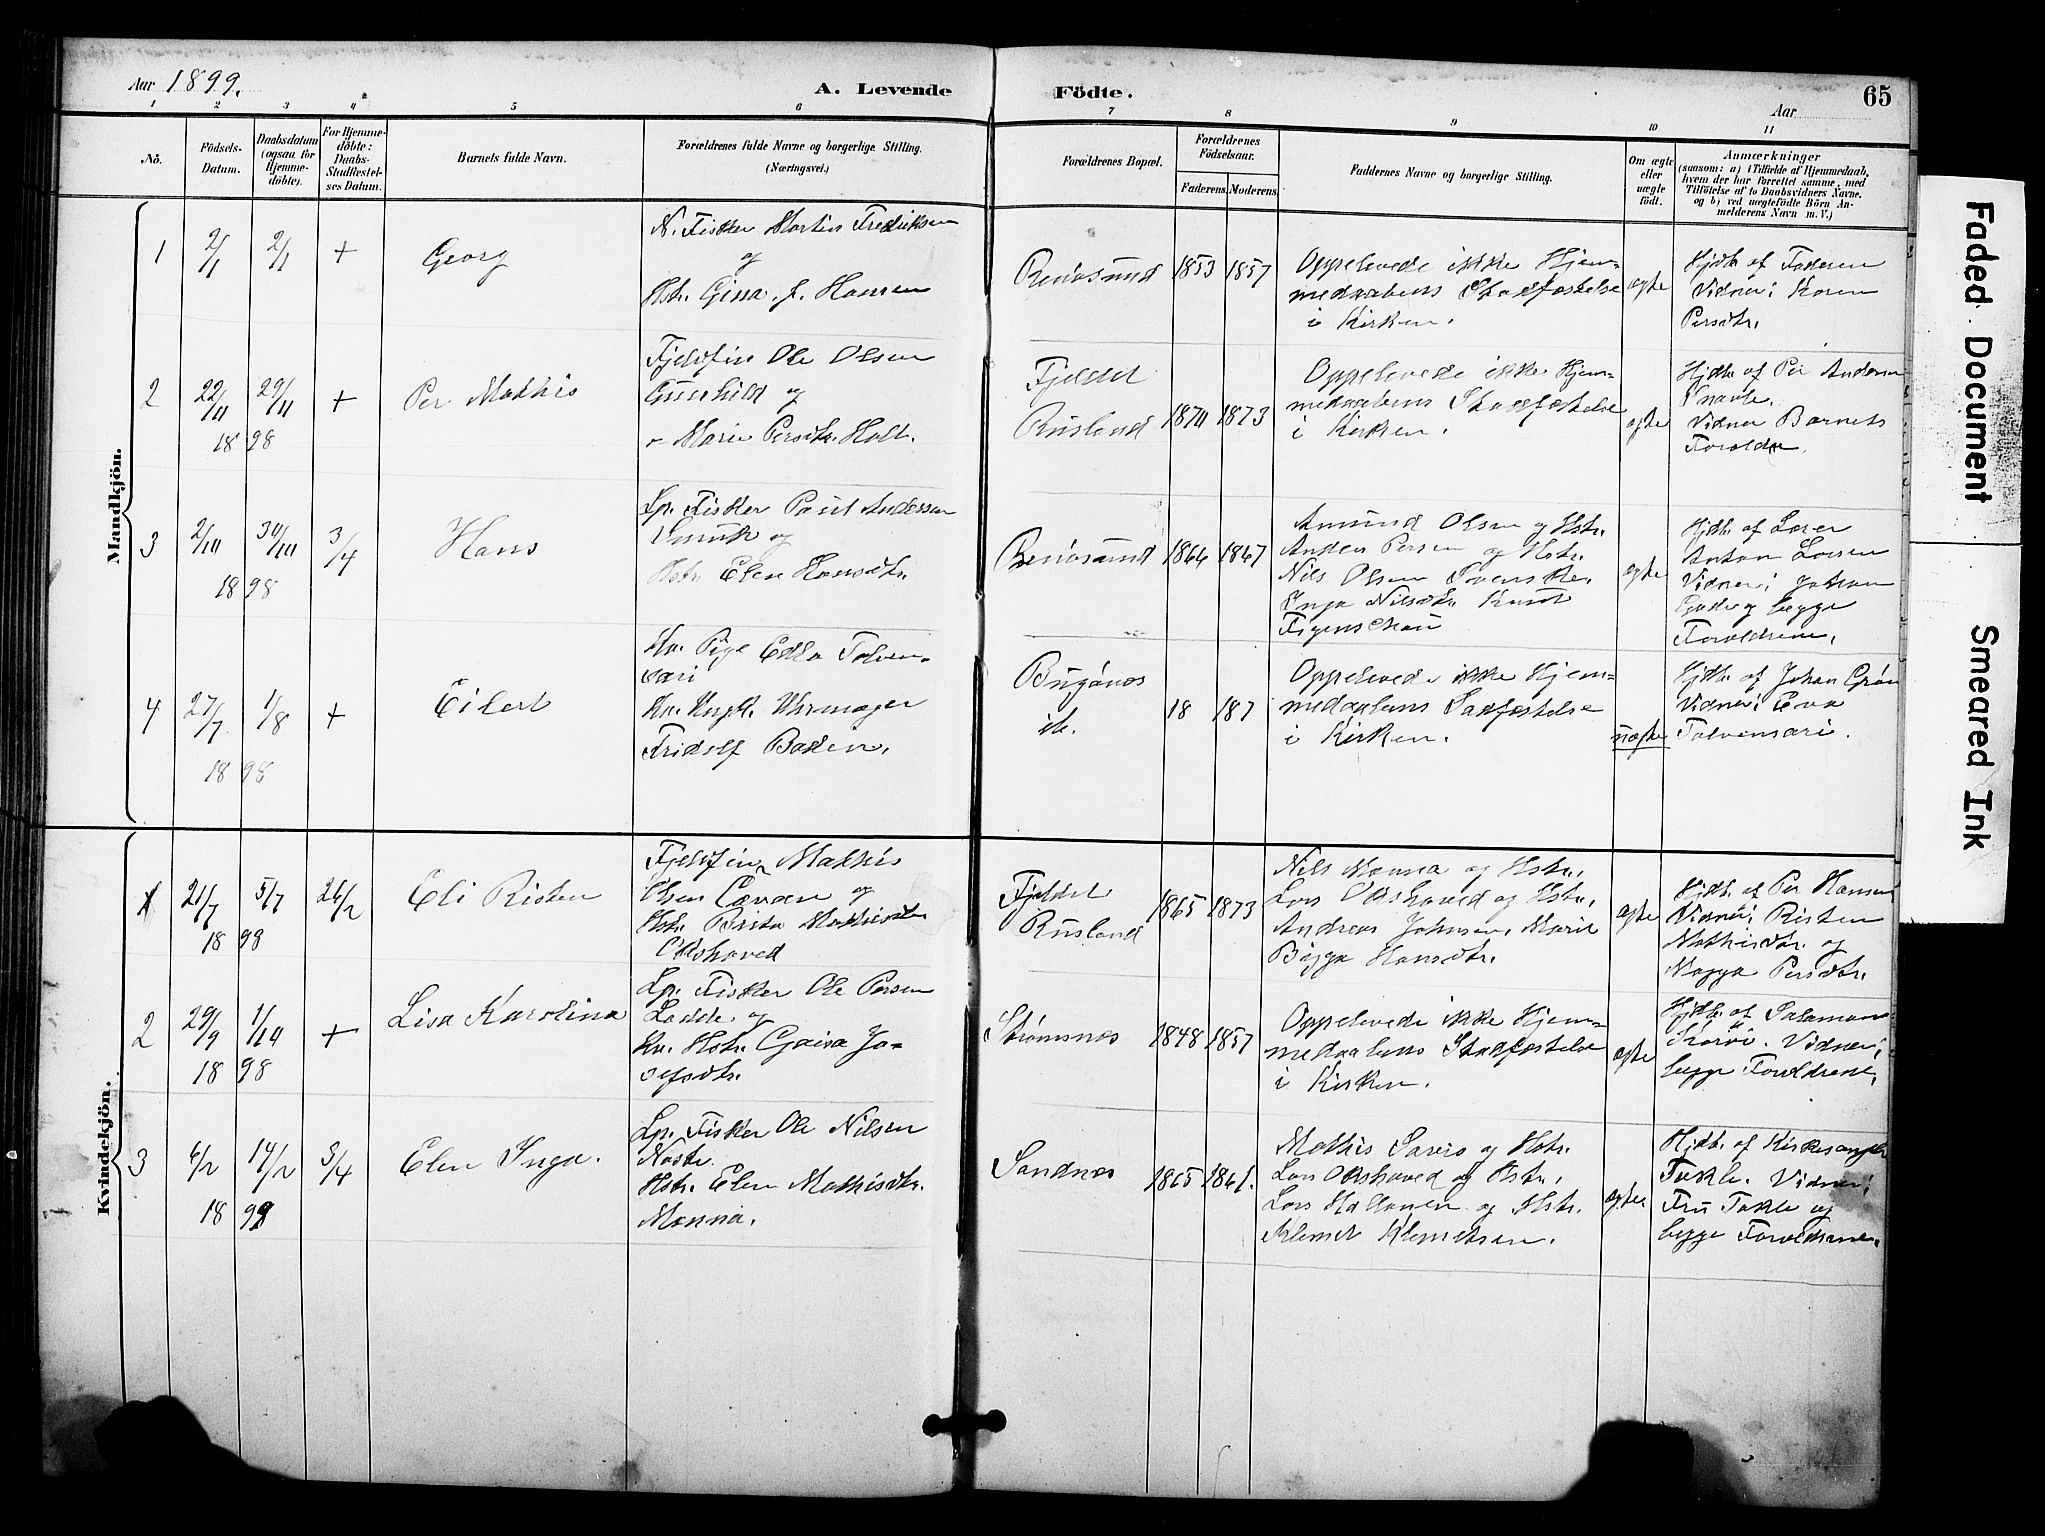 Aar 1899.
A. Levende Födte.
Aar
65
1 2 3 4 5 6 7 8 9 10 11
No.
Födsels-
Datum.
Daabsdatum
(ogsaa for
Hjemme-
döbte).
For Hjemme-
döbte:
Daabs-
Stadfæstel-
ses Datum.
Barnets fulde Navn.
Forældrenes fulde Navne og borgerlige Stilling.
(Næringsvei.)
Forældrenes Bopæl.
Forældrenes
Födselsaar.
Faderens. Moderens.
Faddernes Navne og borgerlige Stilling.
Om ægte
eller
uægte
født.
Anmærkninger
(saasom: a) i Tilfælde af Hjemmedaab,
hvem der har forrettet samme, med
Tilföielse af to Daabsvidners Navne.
og b) ved uægtefödte Börn An-
melderens Navn m. V.)
Mandkjön.
1 2/1 2/1 +
Georg
N. Fisker Martin Fredriksen
og
Hstr. Gina J. Hansen
Renøsund
1853 1857
Oppelevede ikke Hjem-
medaabens Stadfæstelse
i Kirken.
ægte
Hjdb. af Faderen
Vidner: Karen
Persdtr.
2 22/11 29/11 +
18 98
Per Mathis
Fjeldfin Ole Olsen
Gunhild og
Marie Persdtr. Holt.
Fjeldet
Rusland
1870 1873
Oppelevede ikke Hjem-
medaabens Stadfæstelse
i Kirken.
ægte
Hjdb. af Per Andersen
Vidner Barnets
Forældre.
3 2/10 30/10 3/4
18 98
Hans
Lp. Fisker Paul Andersen
og
Hstr. Elen Hansdtr.
Renøsund
1866 1867
Amund Olsen og Hstr.
Anders Persen og Hstr.
Nils Olsen Svenske,
Inga Nilsdtr. Knut
Figenschau
ægte
Hjdb. af Lærer
Anton Larsen
Vidner: Johan
og begge
Forældrene.
4 27/7 1/8 +
18 98
Eilert
Kv. Pige Edla Talven-
sari
Kv. Ungk. Uhrmager
Fridolf Bodin.
Bugønæs
ik.
18 187
Oppelevede ikke Hjem-
medaabens Stadfæstelse
i Kirken.
uægte
Hjdb. af Johan Grøn
Vidner: Eva
Talvensari.
Kvindekjön.
1 21/7 5/7 26/2
18 98
Eli Risten
Fjeldfin Mathis
Olsen og
Hstr. Brita Mathisdtr.
Oksehoved
Fjeldet
Rusland
1865 1873
Nils Manna og Hstr.,
Lars Oksehoved og Hstr.,
Andreas Johnsen, Marit
Bigga Hansdtr.
ægte
Hjdb. af Per Hansen
Vidner: Risten
Mathisdtr. og
Magga Persdtr.
2 29/9 1/10 +
18 98
Lisa Karolina
Lp. Fisker Ole Persen
Ladde og
Kv. Hstr. Gaisa Jo-
sefsdtr.
Strømsnæs
1848 1857
Oppelevede ikke Hjem-
medaabens Stadfæstelse
i Kirken.
ægte
Hjdb. af Salamon
Vidner:
begge Forældrene.
3 6/2 14/2 3/4
18 99
Elen Inga.
Lp. Fisker Ole Nilsen
Naste
Hstr. Elen Mathisdtr.
Manna.
Sandnæs
1865 1861.
Mathis Savio og Hstr.
Lars Oksehoved og Hstr.,
Lars Haldonen og Hstr.
Klemet Klemetsen.
ægte
Hjdb. af Kirkesanger
Takle. Vidner:
Fru Takle og
begge Forældrene.
Faded Document
Smeared Ink